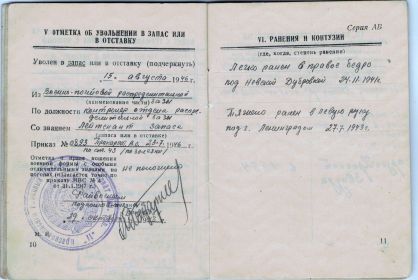 V ОТМЕТКА ОБ УВОЛЬНЕНИИ В ЗАПАС ИЛИ
В ОТСТАВКУ
Уволен в запас или в отставку (подчеркнуть)
15. августа 1946 г.
Из Военно-почтовой распределительной
(наименование части) базы
По должности контролер отдела распре-
делительной базы
Со званием Лейтенант запаса
(запаса или в отставке)
Приказ № 0893 27.7. 1946 г.
по ст. 43 (по болезни)
Отметка о праве ношения
военной формы с особыми
отличительными знаками на
погонах (делается только по
приказу НВС №
от 31.1.1947 г.)
не положено
Райвоенком
Подполковник
М. П.
10
Серия АБ
VI. РАНЕНИЯ И КОНТУЗИИ
(где, когда, степень ранения)
Легко ранен в правое бедро
под Невской Дубровкой 24.11.1941г.
Тяжело ранен в левую руку
под г. Ленинградом 27.7.1943г.
11